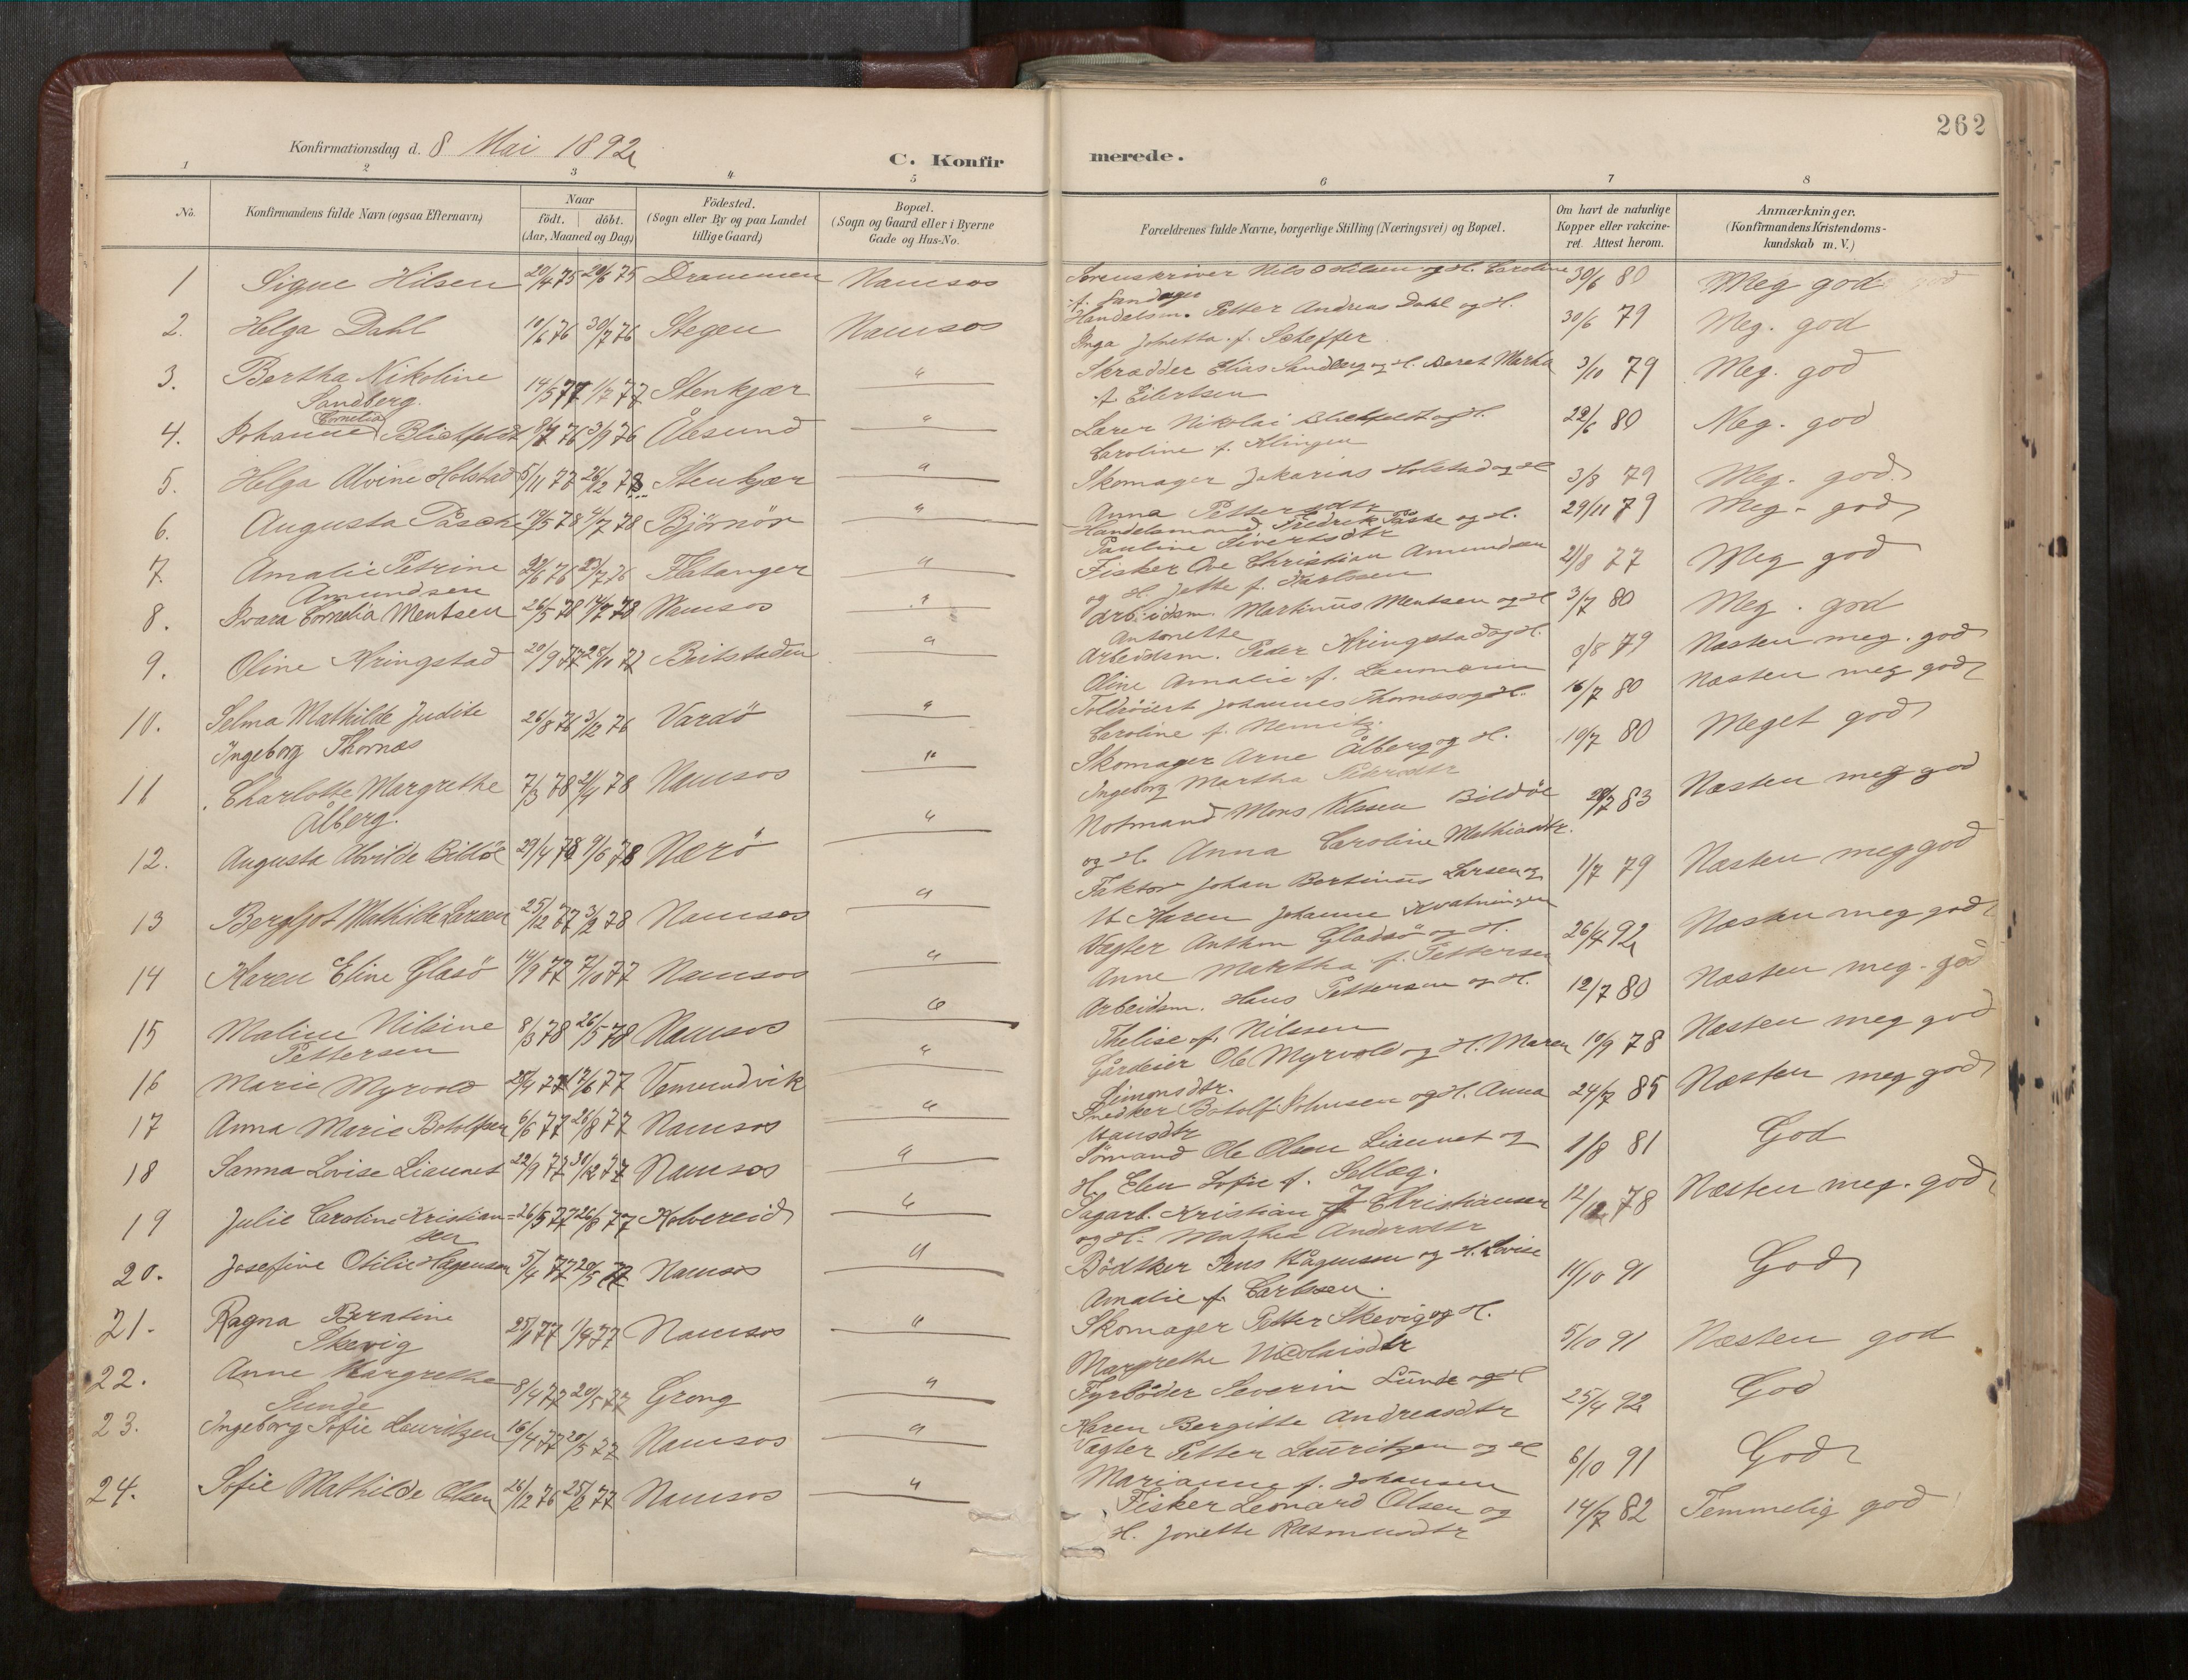 262
Konfirmationsdag d. 8 Mai 1892
C. Konfirmerede.
1 2 3 4 5 6 7 8
No.
Konfirmandens fulde Navn (ogsaa Efternavn)
Naar
födt. döbt.
(Aar, Maaned og Dag)
Födested.
(Sogn eller By og paa Landet
tillige Gaard)
Bopæl.
(Sogn og Gaard eller i Byerne
Gade og Hus-No.
Forældrenes fulde Navne, borgerlige Stilling (Næringsvei) og Bopæl.
Om havt de naturlige
Kopper eller vakcine-
ret. Attest herom.
Anmærkninger.
(Konfirmandens Kristendoms-
kundskab m. V.)
1 Signe Hilsen 20/4 75 20/6 75 Drammen Namsos Sorenskriver Nils O Hilsen og H. Caroline 30/6 80 Meg god
f. Sandager
2. Helga Dahl 10/6 76 30/7 76 Stegen Namsos Handelsm. Petter Andreas Dahl og H. 30/6 79 Meg. god
Inga Jonetta f. Scheffer
3. Bertha Nikoline 14/5 77 1/7 77 Stenkjær " Skrædder Elias Sandberg og H. Beret Martha 3/10 79 Meg. god
Sandberg. f. Eilertsen
4. Johanne Cornelia Blichfeldt 9/7 76 3/9 76 Ålesund " Lærer Nikolai Blichfeldt og H. 22/6 80 Meg. god
Caroline f. Klingen
5. Helga Alvine Holstad 5/11 77 26/12 78 Stenkjær " Skomager Zakarias Holstad og H 3/8 79 Meg. god
Anna Pettersdtr
6. Augusta Påsche 19/5 78 4/7 78 Björnör " Handelsmand Fredrik Påske og H. 29/11 79 Meg. god
Pauline Sivertsdtr
7. Amalie Petrine 22/6 76 23/7 76 Flatanger " Fisker Ove Christian Amundsen 21/8 77 Meg god
Amundsen og H. Jette f. Karlssen
8. Ivara Cornelia Mentsen 26/5 78 14/7 78 Namsos " Arbeidsm. Martinus Mentsen og H 3/7 80 Meg. god
Antonette
9. Oline Kringstad 20/9 77 28/10 77 Beitstaden " Arbeidsm. Peder Kringstad og H. 3/8 79 Næsten meg. god
Oline Amalie f.
10. Selma Mathilde Judite 26/8 76 3/12 76 Vardö " Toldroiert Johannes Thomæs og H. 16/7 80 Næsten meg god
Ingeborg Thomæs Caroline f. Nemitz.
11 Charlotte Margrethe 7/3 78 21/4 78 Namsos " Skomager Arne Ålberg og H. 10/7 80 Meget god
Ålberg. Ingeborg Martha Petersdtr
12. Augusta Alvilde Bildöe 29/4 78 9/6 78 Nærö " Notmand Mons Nilssen Bildöe 28/7 83 Næsten meg god
og H. Anna Caroline Mathiasdtr.
13 Bergljot Mathilde Larsen 25/12 77 3/2 78 Namsos " Faktor Johan Bertinus Larsen og 1/7 79 Næsten meg god
H Karen Johanne Kvatningen
14 Karen Eline Glasö 14/9 77 7/10 77 Namsos " Vagter Anthon Gladsö og H. 26/4 92 Næsten meg god
Anne Martha f. Pettersen
15 Maline Nilsine 8/3 78 26/5 78 Namsos " Arbeidsm. Hans Pettersen og H. 12/7 80 Næsten meg. god
Pettersen Thelise f. Nilssen
16 Marie Myrvold 27/4 77 17/6 77 Vemundvik " Gårdeier Ole Myrvold og H. Maren 10/9 78 Næsten meg god
Simonsdtr.
17 Anna Marie Botolfsen 6/6 77 26/8 77 Namsos " Snedker Botolf Johnsen og H. Anna 24/7 85 Næsten meg god
Hansdtr
18 Sanna Lovise Liaunet 22/9 77 30/12 77 Namsos " Sömand Ole Olsen Liaunet og 1/8 81 God
H. Elen Sofie f. Sellæg.
19 Julie Caroline Kristian= 26/5 77 26/8 77 Kolvereid " Sagarb. Kristian J Christiansen 12/12 78 Næsten meg. god
sen og H. Mathea Andersdtr
20. Josefine Otilie Hågensen 5/4 77 20/5 77 Namsos " Bödtker Jens Hågensen og H. Lovise 11/10 91 God
Amalie f. Carlssen.
21. Ragna Berntine 25/1 77 1/9 77 Namsos " Skomager Petter Skevig og H. 5/10 91 Næsten god
Skevig Margrethe Nicolaisdtr
22. Anne Margrethe 8/4 77 20/5 77 Grong " Fyrböder Severin Lunde og H 25/4 92 God
Lunde Karen Bergitte Andreasdtr
23. Ingeborg Sofie Lauritzen 16/4 77 20/5 77 Namsos " Vagter Petter Lauritzen og H 6/10 91 God
Marianne f. Johansen
24. Sofie Mathilde Olsen 26/12 76 25/2 77 Namsos " Fisker Leonard Olsen og 14/7 82 Temmelig god
H. Jonette Rasmusdtr